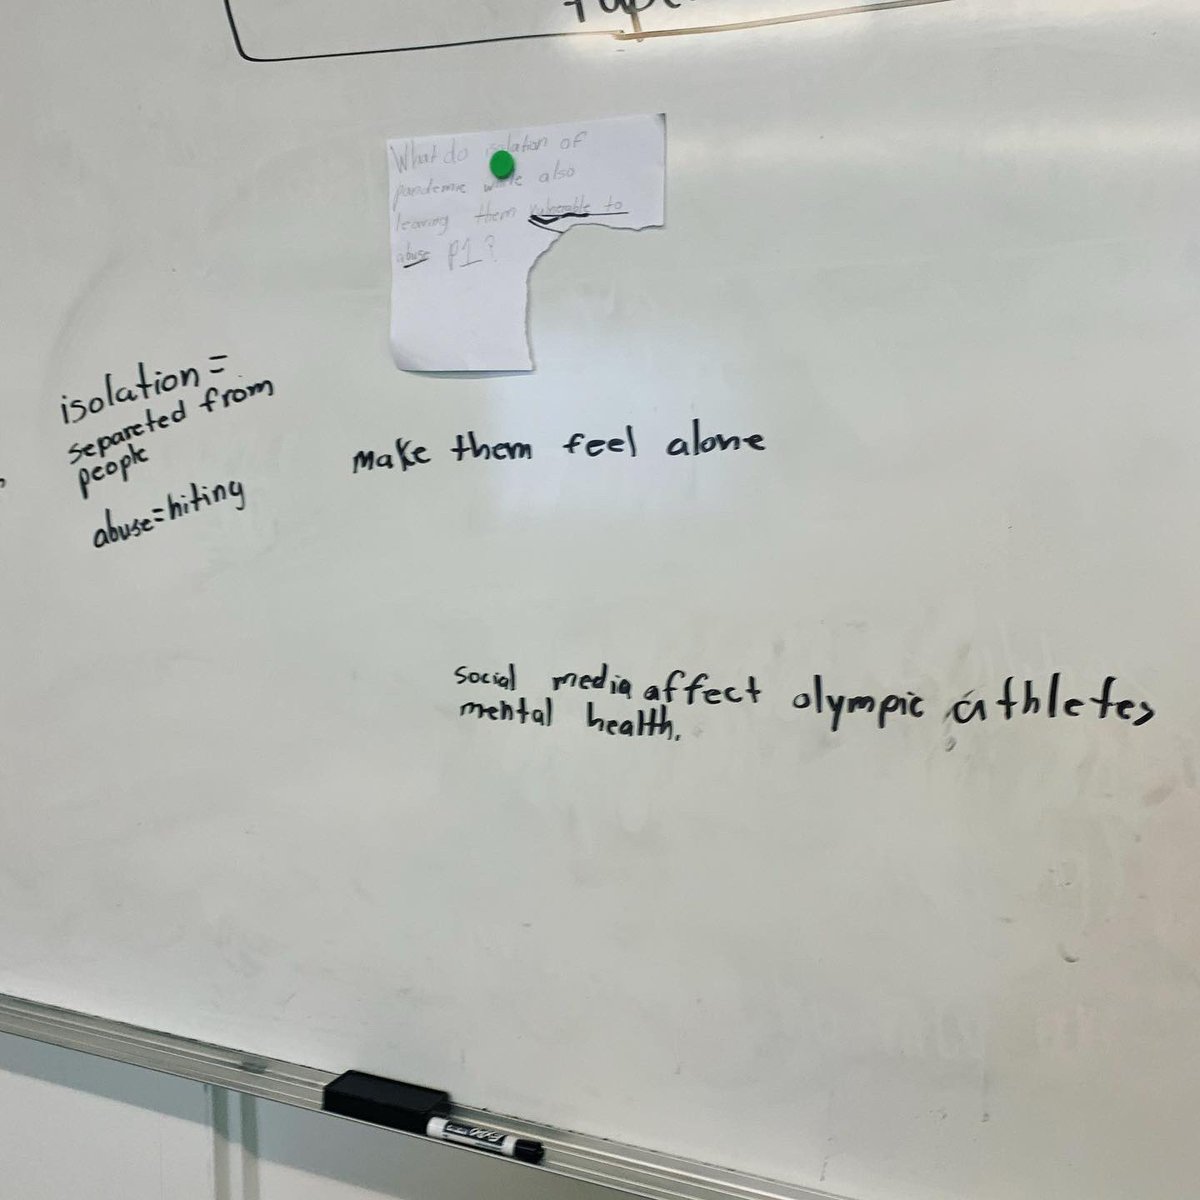 What do isolation of
pandemic while also
leaving them vulnerable to
abuse P1?
isolation =
separeted from
people
abuse=hiting
make them feel alone
social media affect olympic athletes
mental health.
EXPO